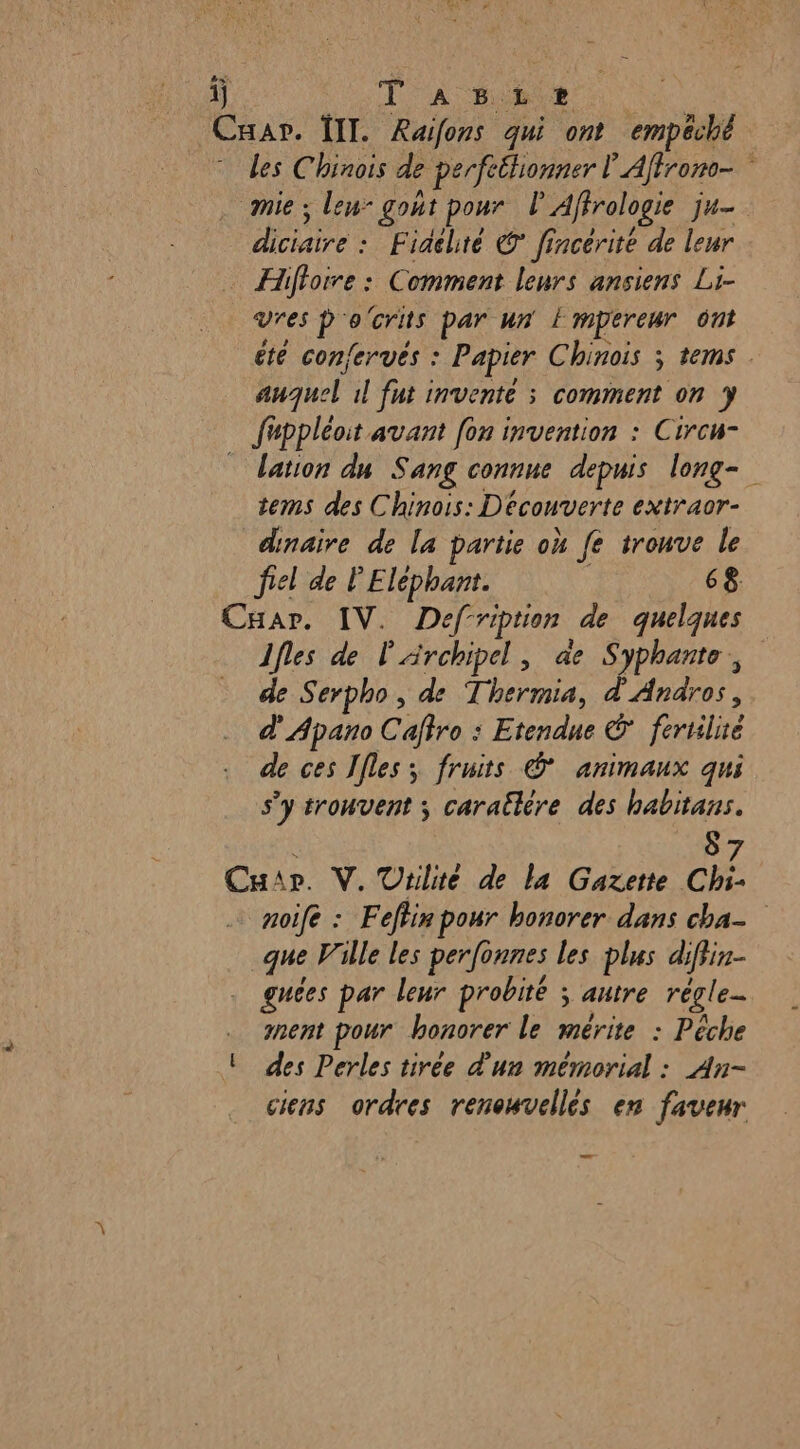 ij TABLE
CHAP. III. Raiſons qui ont empêché
les Chinois de perfectionner l'Aſtrono-
mie ; leur goût pour l'Aſtrologie ju-
diciaire : Fidélité & ſincérité de leur
Hiſtoire : Comment leurs ansiens Li-
vres p o'crits par un Empereur ont
été conſervés : Papier Chinois ; tems
auquel il fut inventé ; comment on y
ſuppléoit avant ſon invention : Circu-
lation du Sang connue depuis long-
tems des Chinois: Découverte extraor-
dinaire de la partie où ſe trouve le
fiel de l'Eléphant. 68
CHAP. IV. Deſcription de quelques
Iſles de l'Archipel, de Syphanto,
de Serpho, de Thermia, d'Andros,
d'Apano Caſtro : Etendue & fertilité
de ces Iſles ; fruits & animaux qui
s'y trouvent ; caractére des habitans.
87
CHAP. V. Utilité de la Gazette Chi-
noiſe : Feſtin pour honorer dans cha-
que Ville les perſonnes les plus diſtin-
guées par leur probité ; autre régle-
ment pour honorer le mérite : Pêche
des Perles tirée d'un mémorial : An-
ciens ordres renouvellés en faveur